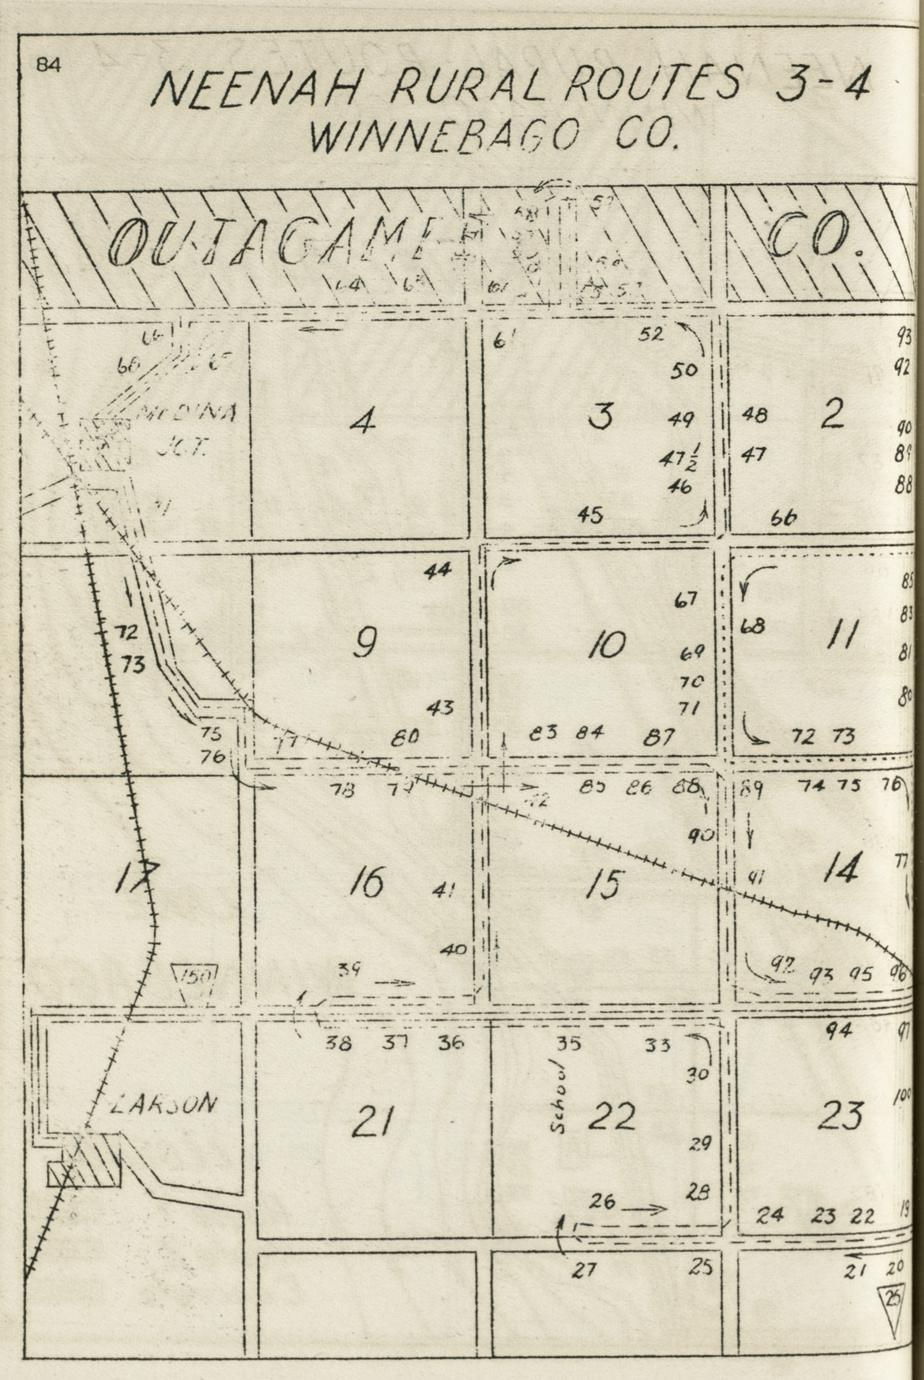 84
NEENAH RURAL ROUTES 3-4
WINNEBAGO CO.
CO.
64
61
52
93
50
92
4
3
49
48
2
90
47½
47
89
46
88
45
66
MEDINA
JCT.
44
67
85
83
72
9
10
69
68
11
81
73
70
80
43
71
75
80
83 84 87
72 73
76
77
78 79
85 86 88
89
74 75 76
90
17
16
41
15
91
14
77
40
150
39
92 93 95 96
38 37 36
35
33
94
97
30
LARSON
School
100
21
22
23
29
28
26
24 23 22
19
27
25
21 20
25